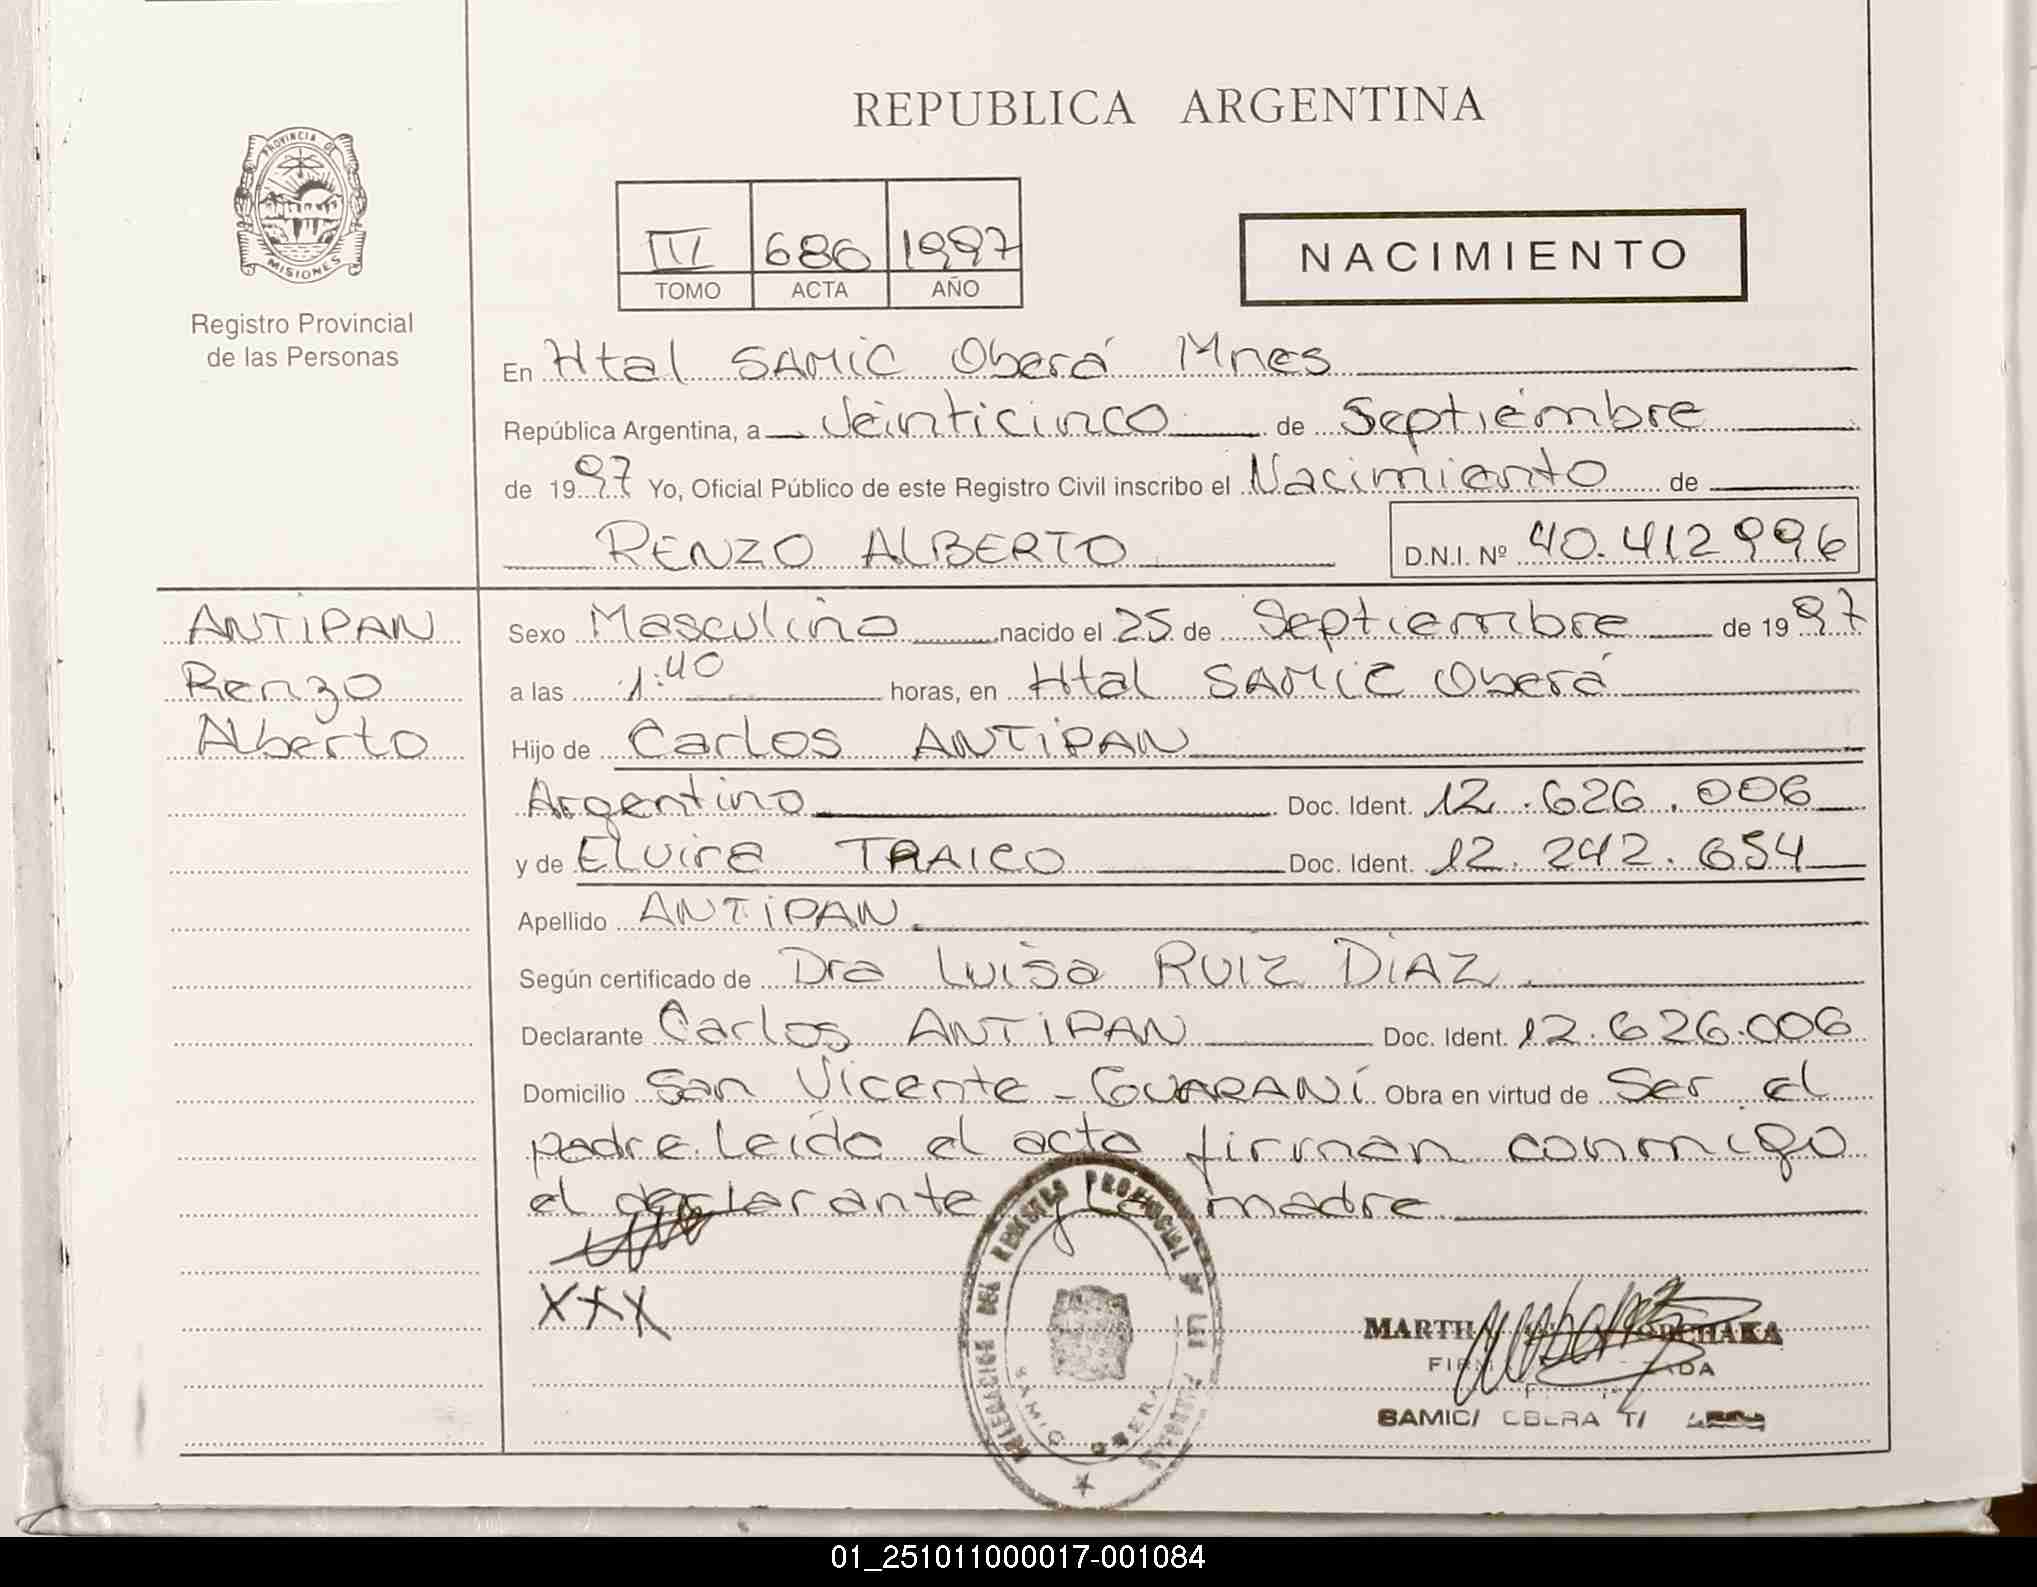 REPUBLICA ARGENTINA
PROVINCIA DE
MISIONES
Registro Provincial
de las Personas
III 686 1997
TOMO ACTA AÑO
NACIMIENTO
En Htal SAMIC Oberá Mnes
República Argentina, a Veinticinco de Septiembre
de 1997 Yo, Oficial Público de este Registro Civil inscribo el Nacimiento de
RENZO ALBERTO D.N.I. Nº 40.412996
ANTIPAN
Renzo
Alberto
Sexo Masculino nacido el 25 de Septiembre de 1997
a las 1:40 horas, en Htal SAMIC Oberá
Hijo de Carlos ANTIPAN
Argentino Doc. Ident. 12.626.006
y de Elvira TRAICO Doc. Ident. 12.242.654
Apellido ANTIPAN
Según certificado de Dra Luisa RUIZ DIAZ
Declarante Carlos ANTIPAN Doc. Ident. 12.626.006
Domicilio San Vicente - GUARANÍ Obra en virtud de Ser el
padre. Leida el acta firman conmigo
el declarante y la madre
XXX
DELEGACION DEL REGISTRO PROVINCIAL DE LAS PERSONAS
SAMIC OBERA
MARTHA
SAMIC/ OBERA
01_251011000017-001084